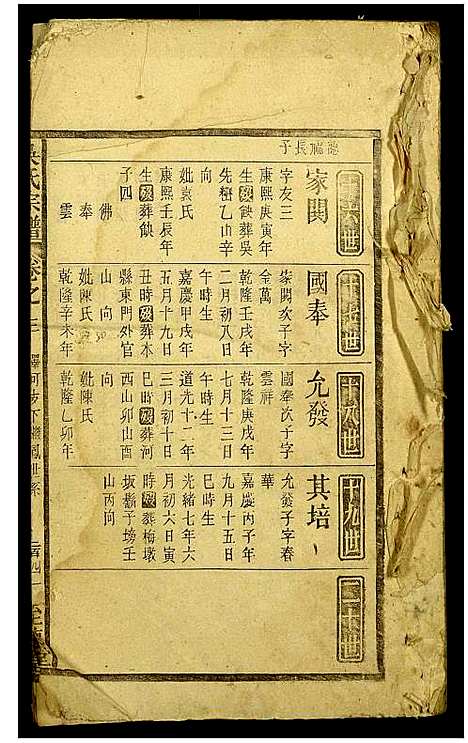 德福長子
十六世
家閎
字友三
康熙庚寅年
生歿缺葬吳
先塋乙山辛
向
妣袁氏
康熙壬辰年
生歿葬缺
子四
佛
奉
雲
十七世
國奉
家閎次子字
金萬
乾隆壬戌年
二月初八日
午時生
嘉慶甲戌年
五月十九日
丑時歿葬本
縣東門外官
山 向
妣陳氏
乾隆辛未年
十八世
允發
國奉次子字
雲祥
乾隆庚戌年
七月十三日
午時生
道光十二年
三月初十日
巳時歿葬河
西山卯山酉
向
妣陳氏
乾隆乙卯年
十九世
其培
允發子字春
華
嘉慶丙子年
九月十五日
巳時生
光緒七年六
月初六日寅
時歿葬梅墩
坂鷸子塝壬
山丙向
二十世
吳氏宗譜
卷之
世系